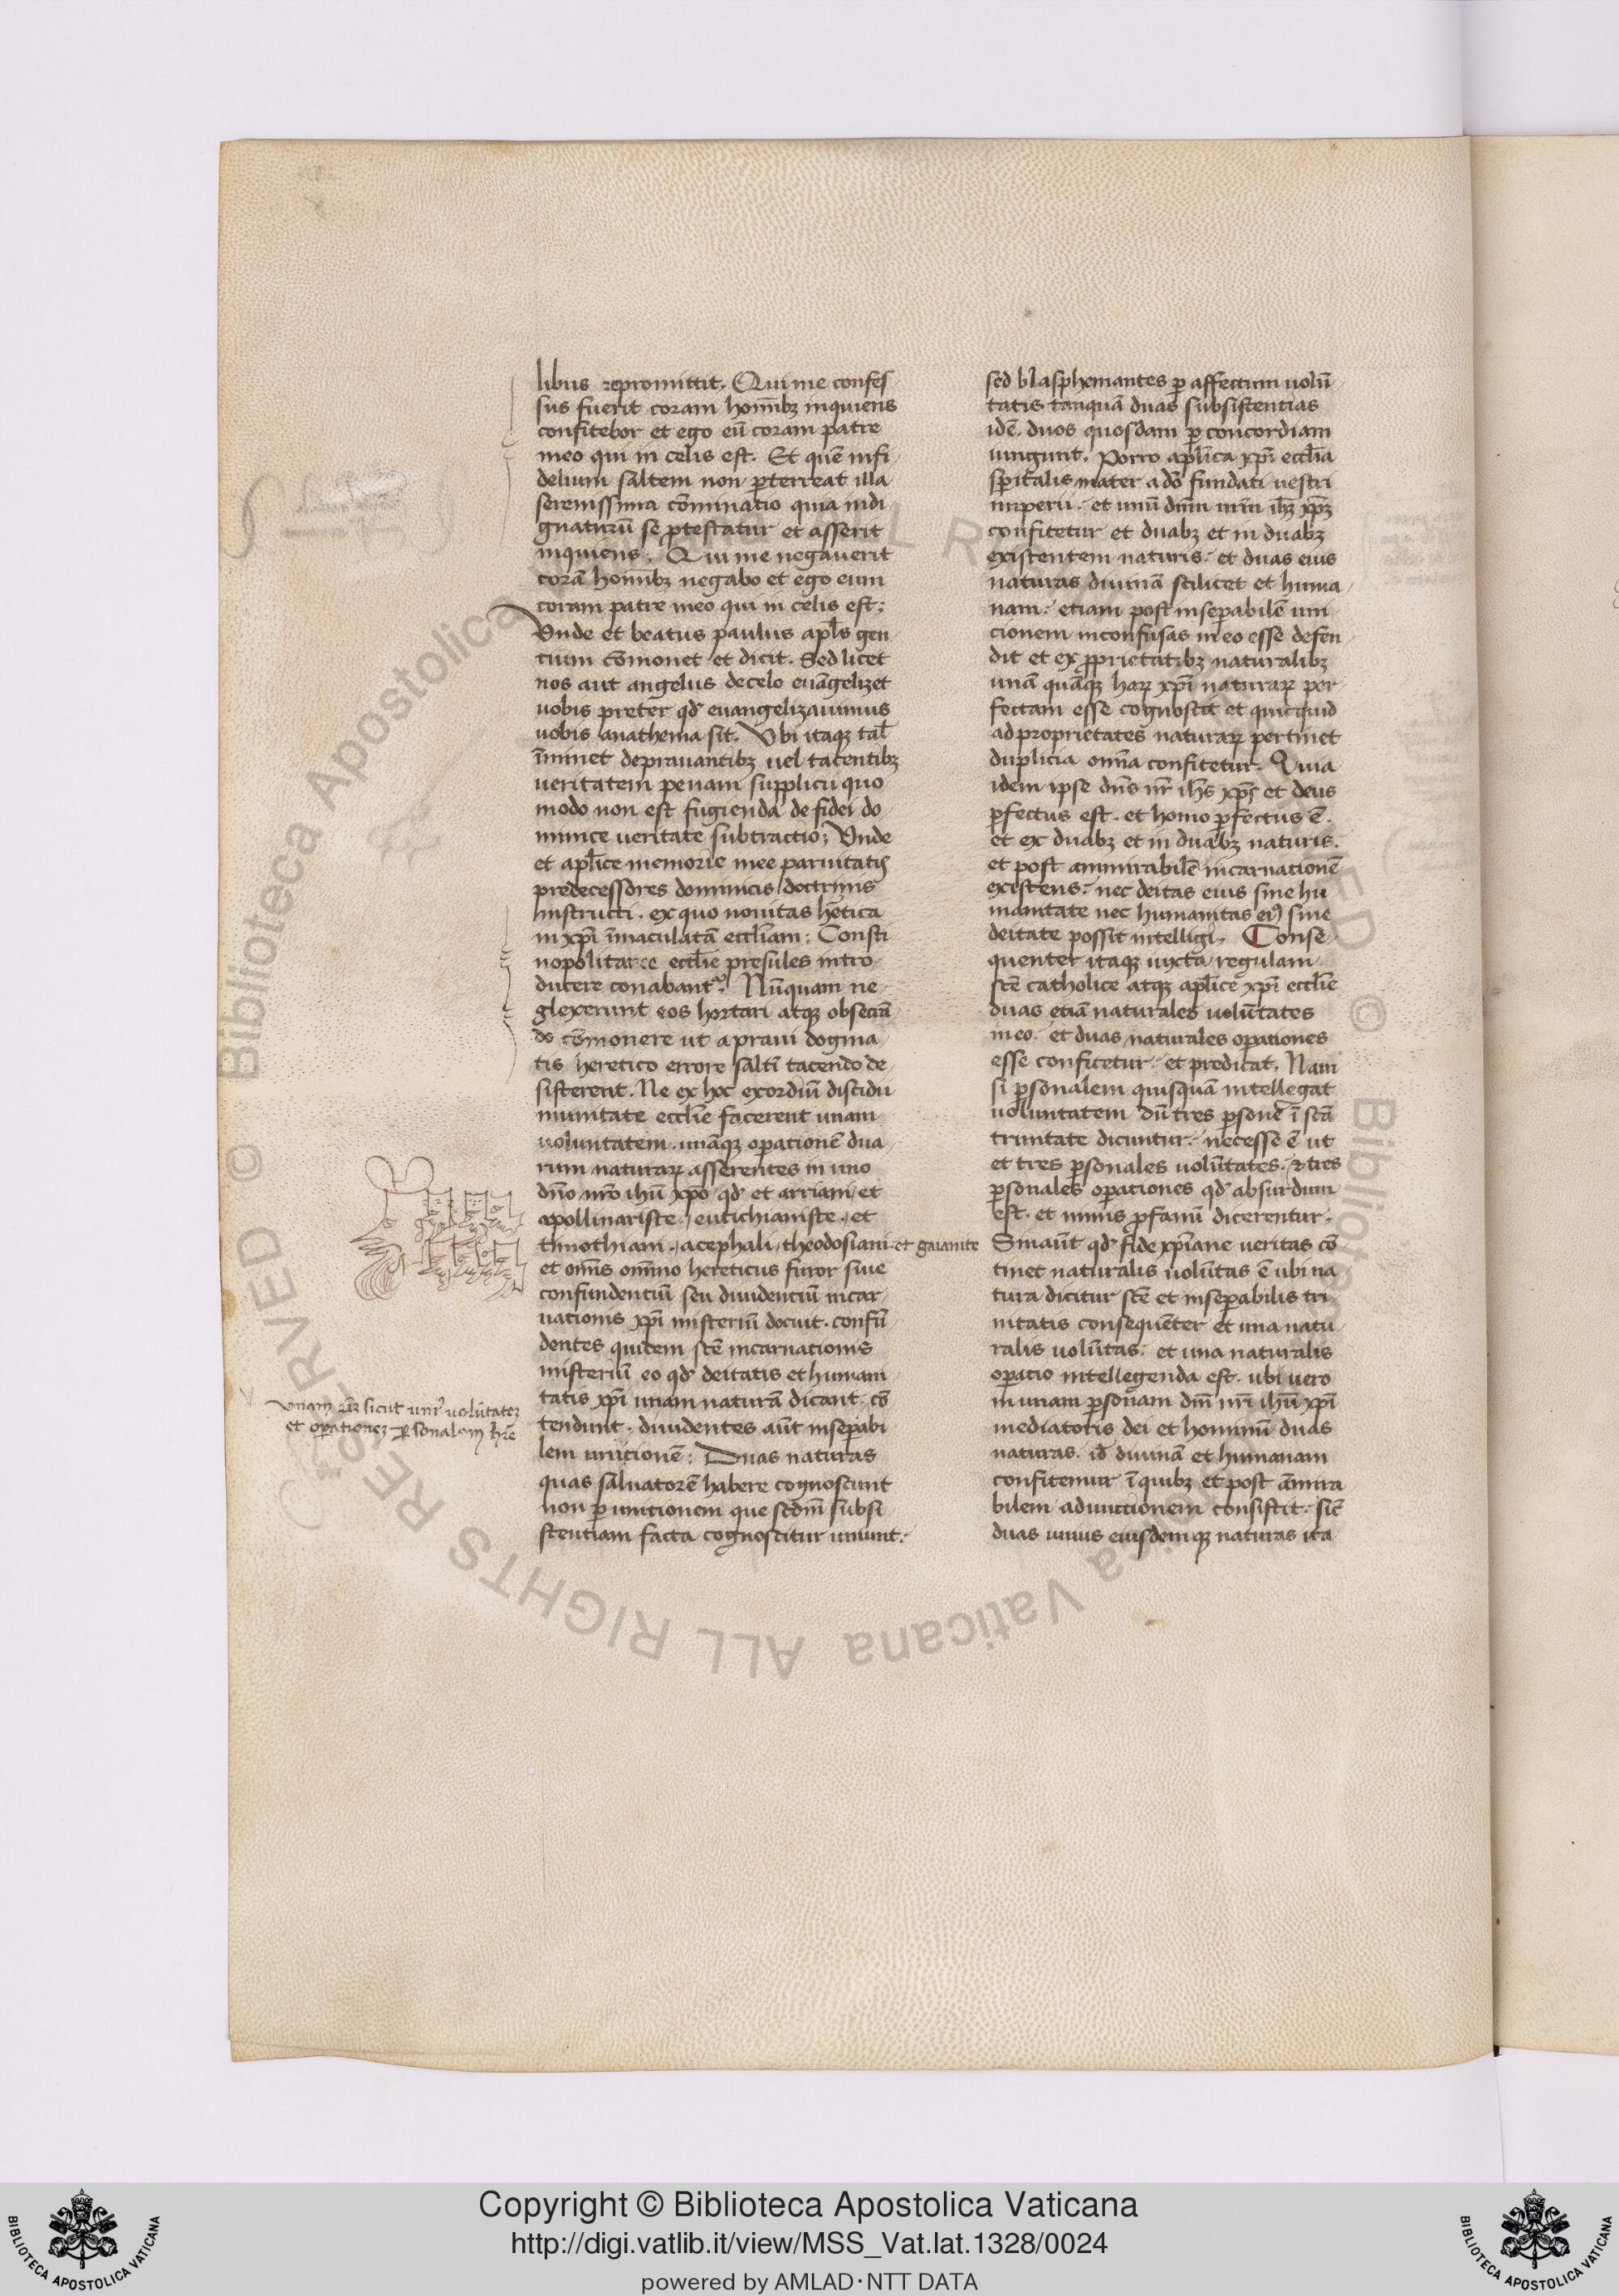 libus repromittit. Qui me confes
sus fuerit coram homībꝫ inquiens
confitebor et ego eū coram patre
meo qui in celis est. Et quē infi
delium saltem non ꝑterreat illa
serenissima cōminatio quia indi
gnaturū se ꝓtestatur et asserit
inquiens. Qui me negauerit
corā homībꝫ negabo et ego eum
coram patre meo qui in celis est:
Vnde et beatus paulus apl̄s gen
tium cōmonet et dicit. Sed licet
nos aut angelus de celo euāgelizet
uobis preter qd̄ euangelizauimus
uobis anathema sit. Vbi itaqꝫ tal̄
īminet deprauantibꝫ uel tacentibꝫ
ueritatem penam supplicii quo
modo non est fugienda de fidei do
minice ueritate subtractio; Vnde
et apl̄ice memorie mee paruitatis
predecessores dominicis doctrinis
instructi. ex quo nouitas h̄etica
in xp̄i īmaculatā eccl̄iam: Consti
nopolitane eccl̄ie presules intro
ducere conabant᷑. Nūquam ne
glexerunt eos hortari atqꝫ obsecrā
do cōmonere ut a praui dogma
tis heretico errore saltī tacendo de
sisterent. Ne ex hoc exordiū discidii
in unitate eccl̄ie facerent unam
uoluntatem. unāqꝫ oꝑationē dua
rum naturaꝝ asserentes in uno
dn̄o nr̄o ihū xp̄o qd̄ et arriani et
apollinariste. eutichianiste. et
timothiani. acephali. theodosiani. et gaianite
et om̄s om̄ino hereticus furor siue
confundentiū seu diuidentiū incar
nationis xp̄i misteriū docuit. confū
dentes quidem sc̄e incarnationis
misteriū eo qd̄ deitatis et humani
tatis xp̄i unam naturā dicant. cō
tendunt. diuidentes aūt inseꝑabi
lem unitionē: Duas naturas
quas saluatorē habere cognoscunt
non ꝑ unitionem que scdm̄ subsi
stentiam facta cognoscitur uniunt:
unam sicut uni᷒ uolūtatez
et oꝑationez ꝑsonalem
sed blasphemantes ꝑ affectum uolū
tatis tanquā duas subsistentias
idē. duos quosdam ꝑ concordiam
iungunt. Porro apl̄ica xp̄i eccl̄ia
sp̄italis mater a dō fundati uestri
imperii. et unū dn̄m nr̄m ihꝫ xp̄ꝫ
confitetur et duabꝫ et in duabꝫ
existentem naturis. et duas eius
naturas diuinā scilicet et huma
nam. etiam post inseꝑabilē uni
cionem inconfusas in eo esse defen
dit et ex ꝓprietatibꝫ naturalibꝫ
unā quāqꝫ haꝝ xp̄i naturaꝝ per
fectam esse cognoscit et quicquid
ad proprietates naturaꝝ pertinet
duplicia om̄ia confitetur. Quia
idem ipse dn̄s nr̄ ihs̄ xp̄c et deus
ꝑfectus est. et homo ꝑfectus ē.
et ex duabꝫ et in duabꝫ naturis.
et post ammirabilē incarnationē
existens. nec deitas eius sine hu
manitate nec humanitas ei᷒ sine
deitate possit intelligi. Conse
quenter itaqꝫ iuxta regulam
sc̄e catholice atqꝫ apl̄ice xp̄i eccl̄ie
duas etiā naturales uolūtates
in eo. et duas naturales oꝑationes
esse confitetur. et predicat. Nam
si ꝑsonalem quisquā intellegat
uoluntatem dū tres ꝑsone ī scā
trinitate dicuntur. necesse ē ut
et tres ꝑsonales uolūtates. & tres
ꝑsonales oꝑationes qd̄ absurdum
est. et nimis ꝓfanū dicerentur.
Sin aūt qd̄ fide xp̄iane ueritas cō
tinet naturalis uolūtas ē ubi na
tura dicitur sc̄e et inseꝑabilis tri
nitatis consequēter et una natu
ralis uolūtas. et una naturalis
oꝑatio intellegenda est. ubi uero
in unam ꝑsonam dn̄i nr̄i ihū xp̄i
mediatoris dei et hominū duas
naturas. id̄ diuinā et humanam
confitemur ī quibꝫ et post āmira
bilem adunctionem consistit. sic̄
duas unius eiusdemqꝫ naturas ita
Copyright © Biblioteca Apostolica Vaticana
http://digi.vatlib.it/view/MSS_Vat.lat.1328/0024
powered by AMLAD·NTT DATA